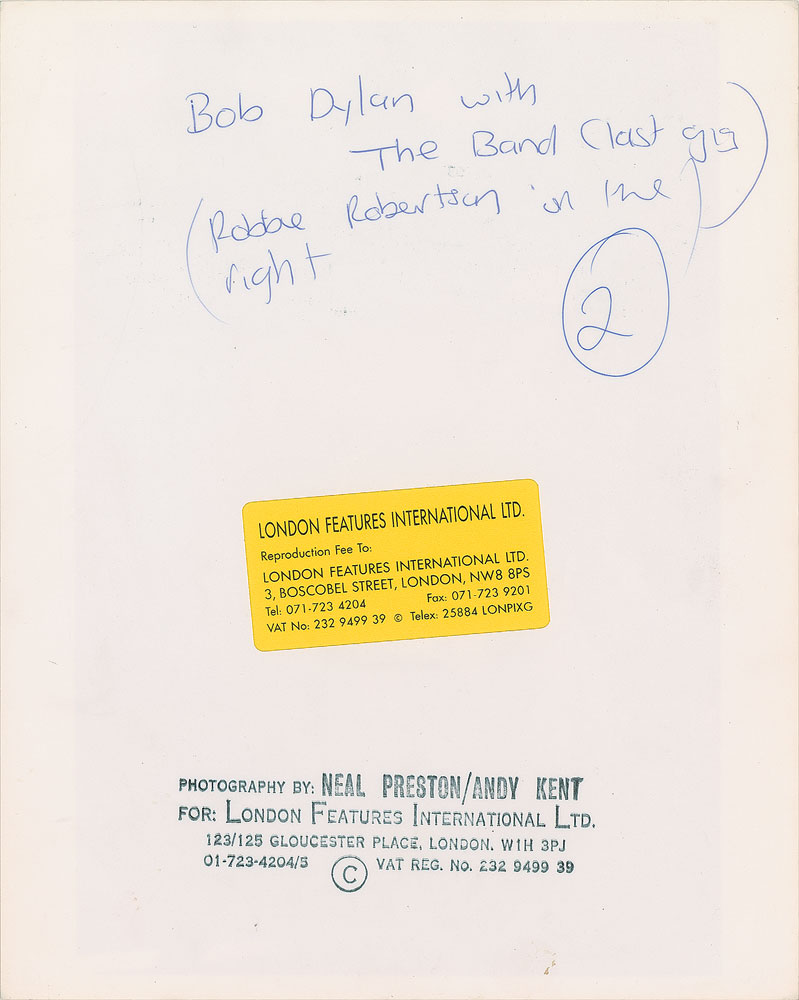 Bob Dylan with
The Band (last gig)
(Robbie Robertson on the
right
2
LONDON FEATURES INTERNATIONAL LTD.
Reproduction Fee To:
LONDON FEATURES INTERNATIONAL LTD.
3, BOSCOBEL STREET, LONDON, NW8 8PS
Tel: 071-723 4204 Fax: 071-723 9201
VAT No: 232 9499 39 © Telex: 25884 LONPIXG
PHOTOGRAPHY BY: NEAL PRESTON/ANDY KENT
FOR: LONDON FEATURES INTERNATIONAL LTD.
123/125 GLOUCESTER PLACE, LONDON. W1H 3PJ
01-723-4204/5 © VAT REG. No. 232 9499 39